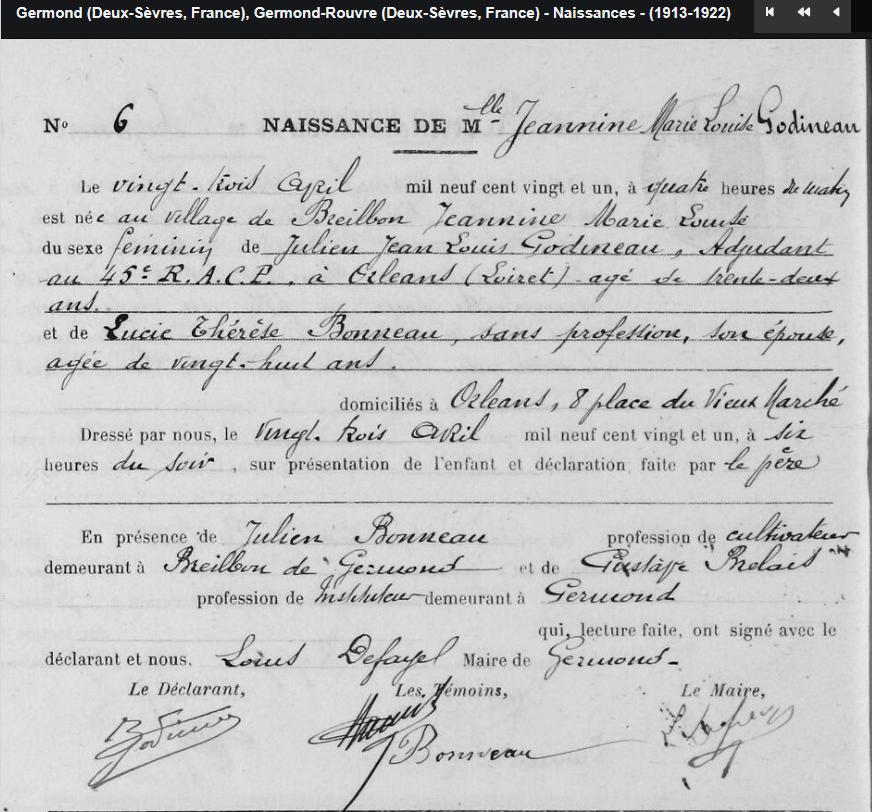 Germond (Deux-Sèvres, France), Germond-Rouvre (Deux-Sèvres, France) - Naissances - (1913-1922)
No 6 NAISSANCE DE Mlle Jeannine Marie Louise Godineau
Le vingt-trois Avril mil neuf cent vingt et un, à quatre heures du matin
est née au village de Breilbon Jeannine Marie Louise
du sexe féminin de Julien Jean Louis Godineau, Adjudant
au 45e R.A.C.P., à Orléans (Loiret) agé de trente-deux
ans.
et de Lucie Thérèse Bonneau, sans profession, son épouse,
agée de vingt-huit ans.
domiciliés à Orléans, 8 place du Vieux Marché
Dressé par nous, le vingt-trois Avril mil neuf cent vingt et un, à six
heures du soir, sur présentation de l'enfant et déclaration faite par le père
En présence de Julien Bonneau profession de cultivateur
demeurant à Breilbon de Germond et de Gustave
profession de Instituteur demeurant à Germond
qui, lecture faite, ont signé avec le
déclarant et nous, Louis Maire de Germond
Le Déclarant, Les Témoins, Le Maire,
Godineau
Bonneau